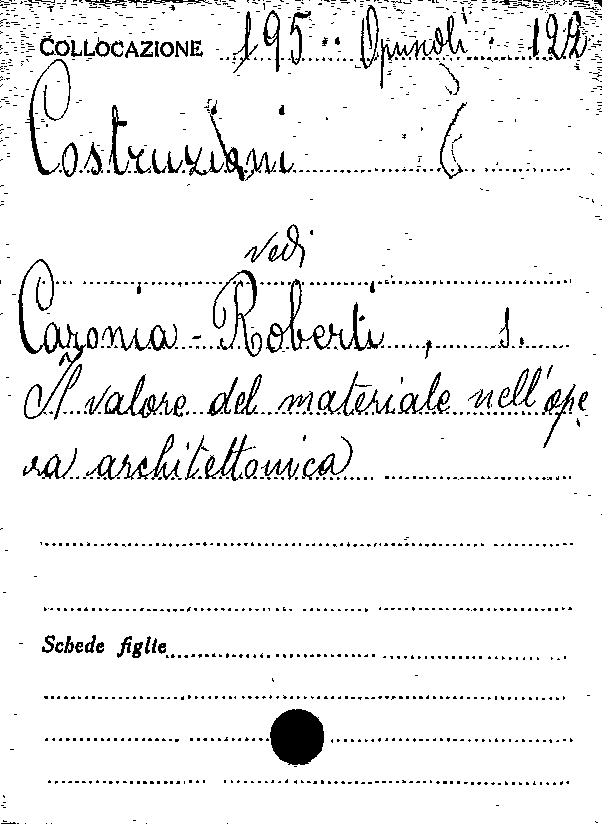 COLLOCAZIONE 195 Opuscoli 122
Costruzioni
vedi
Caronia-Roberti, S.
Il valore del materiale nell'ope
ra architettonica
Schede figlie